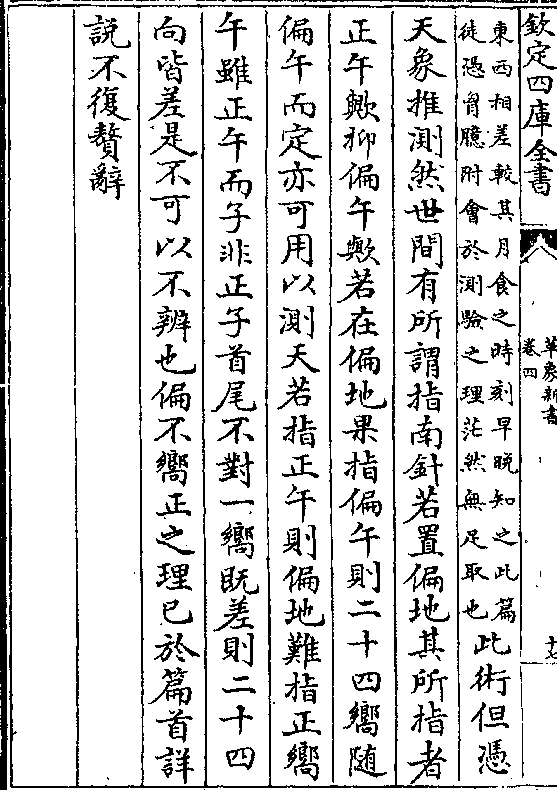 欽定四庫全書
革象新書
卷四
十七
東西相差較其月食之時刻早晚知之此篇
徒憑胷臆附會於測驗之理茫然無足取也
此術但憑
天象推測然世間有所謂指南針若置偏地其所指者
正午歟抑偏午歟若在偏地果指偏午則二十四嚮隨
偏午而定亦可用以測天若指正午則偏地難指正嚮
午雖正午而子非正子首尾不對一嚮既差則二十四
向皆差是不可以不辨也偏不嚮正之理已於篇首詳
說不復贅辭